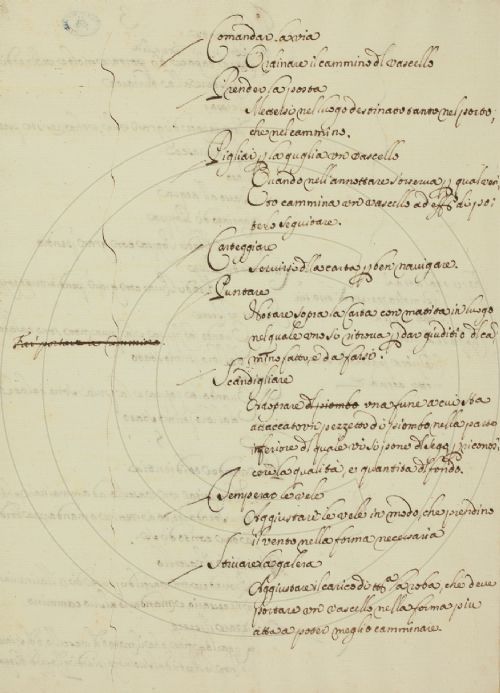 Comandar la via
Ordinare il cammino dl Vascello
Prender la posta
Mettersi nel luogo destinato tanto nel porto,
che nel cammino.
Pigliar p la guglia un Vascello
Quando nell'annottare s'osserva p qual
cammina un Vascello ad eff.o di po
terlo seguitare.
Carteggiare
Servirsi dla carta p ben navigare.
Puntare
Notare sopra la Carta con matita in luogo
nel quale uno si ritrova p dar giuditio dl ca
mino fatto, e da farsi.
Far portare
Scandigliare
Adoprare dl piombo una fune a cui sta
attaccato un pezzetto di piombo nella parte
inferiore dl quale vi si pone dl sego p ricono
cere la qualità, e quantità dl fondo.
Temperar le vele
Aggiustare le vele in modo, che prendino
il vento nella forma necessaria
Stivare la galera
Aggiustare il carico di tt.a la roba, che deve
portare un Vascello nella forma piu
atta a poter meglio camminare.